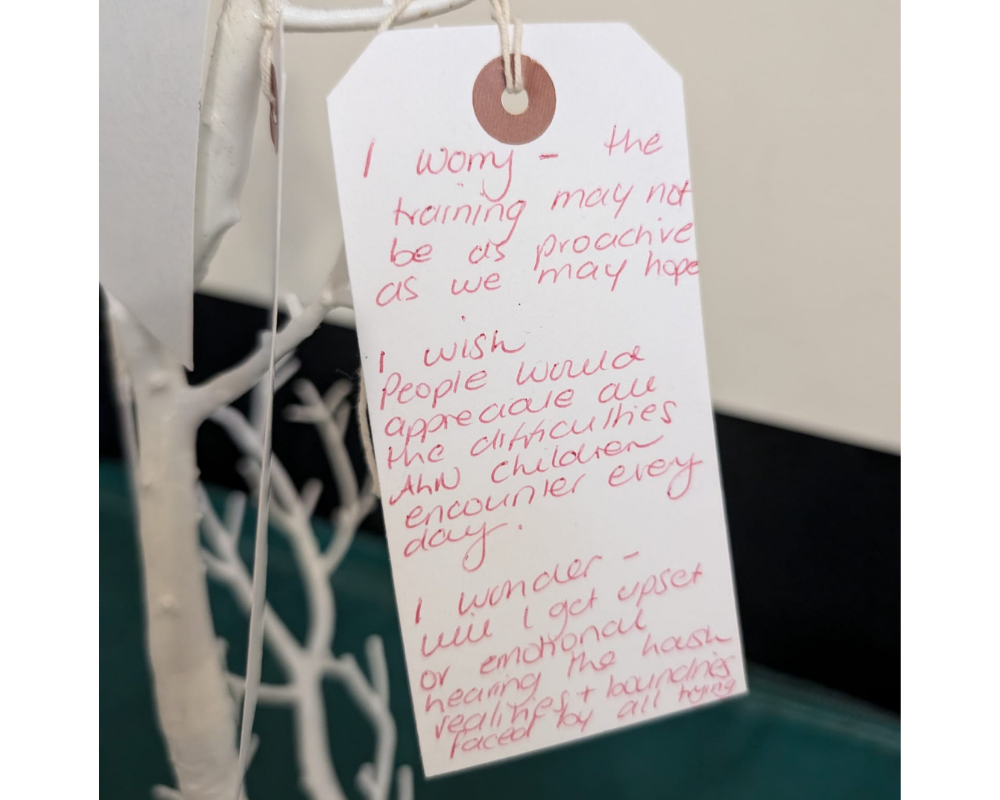 I worry - the
training may not
be as proactive
as we may hope
I wish
People would
appreciate all
the difficulties
ALN children
encounter every
day.
I wonder -
will I get upset
or emotional
hearing the hash
realities + boundries
faced by all trying